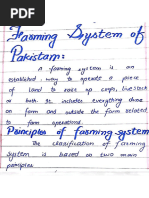 Farming System of
Pakistan:
A farming system is an
established way to operate a piece
of land to raise up corps, livestock
or both. It includes everything done
on farm and outside the form related
to farm operations.
Principles of farming system
The classification of farming
system is based on two main
principles